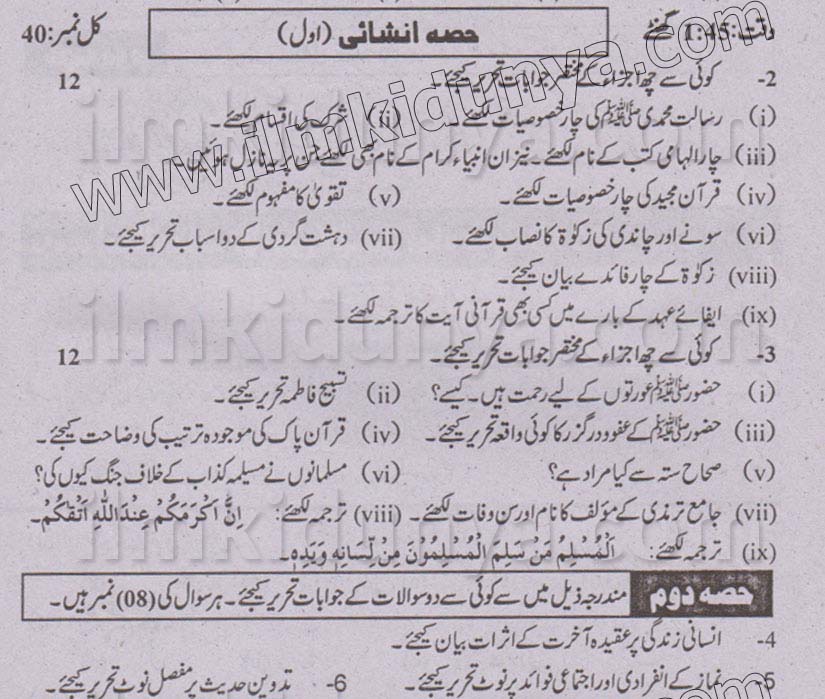 وقت: 1:45 گھنٹے حصہ انشائی (اول) کل نمبر: 40
2- کوئی سے چھ اجزاء کے مختصر جوابات تحریر کیجئے۔ 12
(i) رسالت محمدی ﷺ کی چار خصوصیات لکھئے۔ (ii) شرک کی اقسام لکھئے۔
(iii) چار الہامی کتب کے نام لکھئے۔ نیز ان انبیاء کرام کے نام بھی لکھئے جن پر یہ نازل ہوئیں۔
(iv) قرآن مجید کی چار خصوصیات لکھئے۔ (v) تقویٰ کا مفہوم لکھئے۔
(vi) سونے اور چاندی کی زکوٰۃ کا نصاب لکھئے۔ (vii) دہشت گردی کے دو اسباب تحریر کیجئے۔
(viii) زکوٰۃ کے چار فائدے بیان کیجئے۔
(ix) ایفائے عہد کے بارے میں کسی بھی قرآنی آیت کا ترجمہ لکھئے۔
3- کوئی سے چھ اجزاء کے مختصر جوابات تحریر کیجئے۔ 12
(i) حضور ﷺ عورتوں کے لیے رحمت ہیں۔ کیسے؟ (ii) تسبیح فاطمہ تحریر کیجئے۔
(iii) حضور ﷺ کے عفو و درگزر کا کوئی واقعہ تحریر کیجئے۔ (iv) قرآن پاک کی موجودہ ترتیب کی وضاحت کیجئے۔
(v) صحاح ستہ سے کیا مراد ہے؟ (vi) مسلمانوں نے مسیلمہ کذاب کے خلاف جنگ کیوں کی؟
(vii) جامع ترمذی کے مؤلف کا نام اور سن وفات لکھئے۔ (viii) ترجمہ لکھئے: اِنَّ اَکْرَمَکُمْ عِنْدَ اللّٰهِ اَتْقٰکُمْ۔
(ix) ترجمہ لکھئے: اَلْمُسْلِمُ مَنْ سَلِمَ الْمُسْلِمُوْنَ مِنْ لِّسَانِهٖ وَیَدِهٖ۔
حصہ دوم مندرجہ ذیل میں سے کوئی سے دو سوالات کے جوابات تحریر کیجئے۔ ہر سوال کی (08) نمبر ہیں۔
4- انسانی زندگی پر عقیدہ آخرت کے اثرات بیان کیجئے۔
5- نماز کے انفرادی اور اجتماعی فوائد پر نوٹ تحریر کیجئے۔ 6- تدوین حدیث پر مفصل نوٹ تحریر کیجئے۔
www.ilmkidunya.com
ilmkidunya.com
ilmkidunya.com
ilmkidunya.com